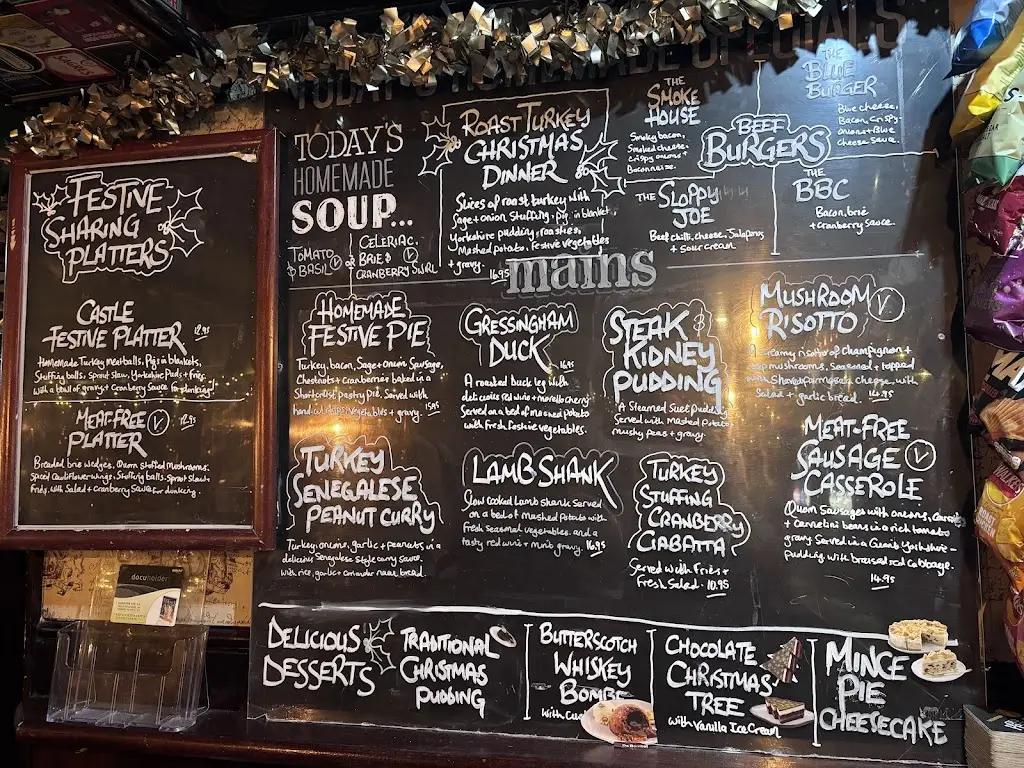 TODAY'S HOMEMADE SPECIALS
FESTIVE
SHARING
PLATTERS
CASTLE
FESTIVE PLATTER 12.95
Homemade Turkey meatballs, Pigs in blankets,
Stuffing balls, Sprout slaw, Yorkshire Puds + fries
with a bowl of gravy + Cranberry Sauce for dunking!
MEAT-FREE V 12.95
PLATTER
Breaded brie wedges, Quorn stuffed Mushrooms,
Spiced Cauliflower wings, Stuffing balls, Sprout slaw +
Fries, with Salad + Cranberry Sauce for dunking.
TODAY'S
HOMEMADE
SOUP...
TOMATO
& BASIL V
OR
CELERIAC,
BRIE & V
CRANBERRY SWIRL
ROAST TURKEY
CHRISTMAS
DINNER
Slices of roast turkey with
Sage + onion Stuffing, pig in blanket,
Yorkshire pudding, roasties,
Mashed potato, festive vegetables
+ gravy. 16.95
THE
SMOKE
HOUSE
Smoky bacon,
Smoked cheese,
Crispy onions +
Baconnaise.
BEEF
BURGERS
THE
BLUE
BURGER
Blue cheese,
Bacon, Crispy
Onions + Blue
Cheese sauce.
THE SLOPPY
JOE
Beef chilli, cheese, Jalapenos
+ sour cream
THE
BBC
Bacon, brie
+ Cranberry sauce.
mains
HOMEMADE
FESTIVE PIE
Turkey, bacon, Sage + onion Sausage,
Chestnuts + Cranberries baked in a
Shortcrust pastry pie. Served with
hand cut chips, vegetables + gravy. 15.95
GRESSINGHAM
DUCK 16.95
A roasted Duck leg with
delicious red wine + morello cherry
Served on a bed of mashed potato
with fresh festive vegetables.
STEAK &
KIDNEY
PUDDING
A Steamed Suet Pudding
Served with Mashed Potato
mushy peas + gravy.
MUSHROOM V
RISOTTO
Creamy risotto of Champignon +
mushrooms, Seasoned + topped
with Shaved Parmesan cheese, with
Salad + garlic bread. 14.95
TURKEY
SENEGALESE
PEANUT CURRY
Turkey, onions, garlic + peanuts in a
delicious Senegalese Style curry Sauce
with rice, garlic + coriander naan bread.
LAMB SHANK
Slow cooked Lamb shank Served
on a bed of Mashed Potato with
Fresh seasonal vegetables. and a
tasty red wine + mint gravy. 16.95
TURKEY
STUFFING
CRANBERRY
CIABATTA
Served with Fries +
Fresh Salad. 10.95
MEAT-FREE
SAUSAGE V
CASSEROLE
Quorn Sausages with onions, Carrots
+ Cannelini beans in a rich tomato
gravy Served in a Giant Yorkshire -
pudding with braised red Cabbage.
14.95
DELICIOUS
DESSERTS
TRADITIONAL
CHRISTMAS
PUDDING
BUTTERSCOTCH
WHISKEY
BOMBE
with
CHOCOLATE
CHRISTMAS
TREE
with Vanilla Ice Cream
MINCE
PIE
CHEESECAKE
docuholder